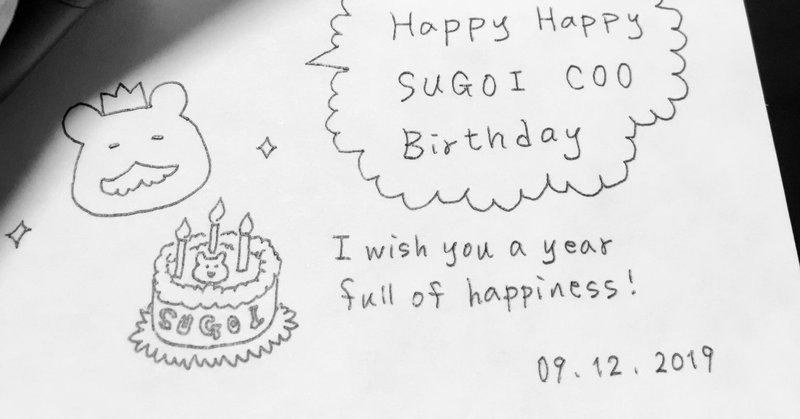 Happy Happy
SUGOI COO
Birthday
I wish you a year
full of happiness!
SUGOI
09.12.2019